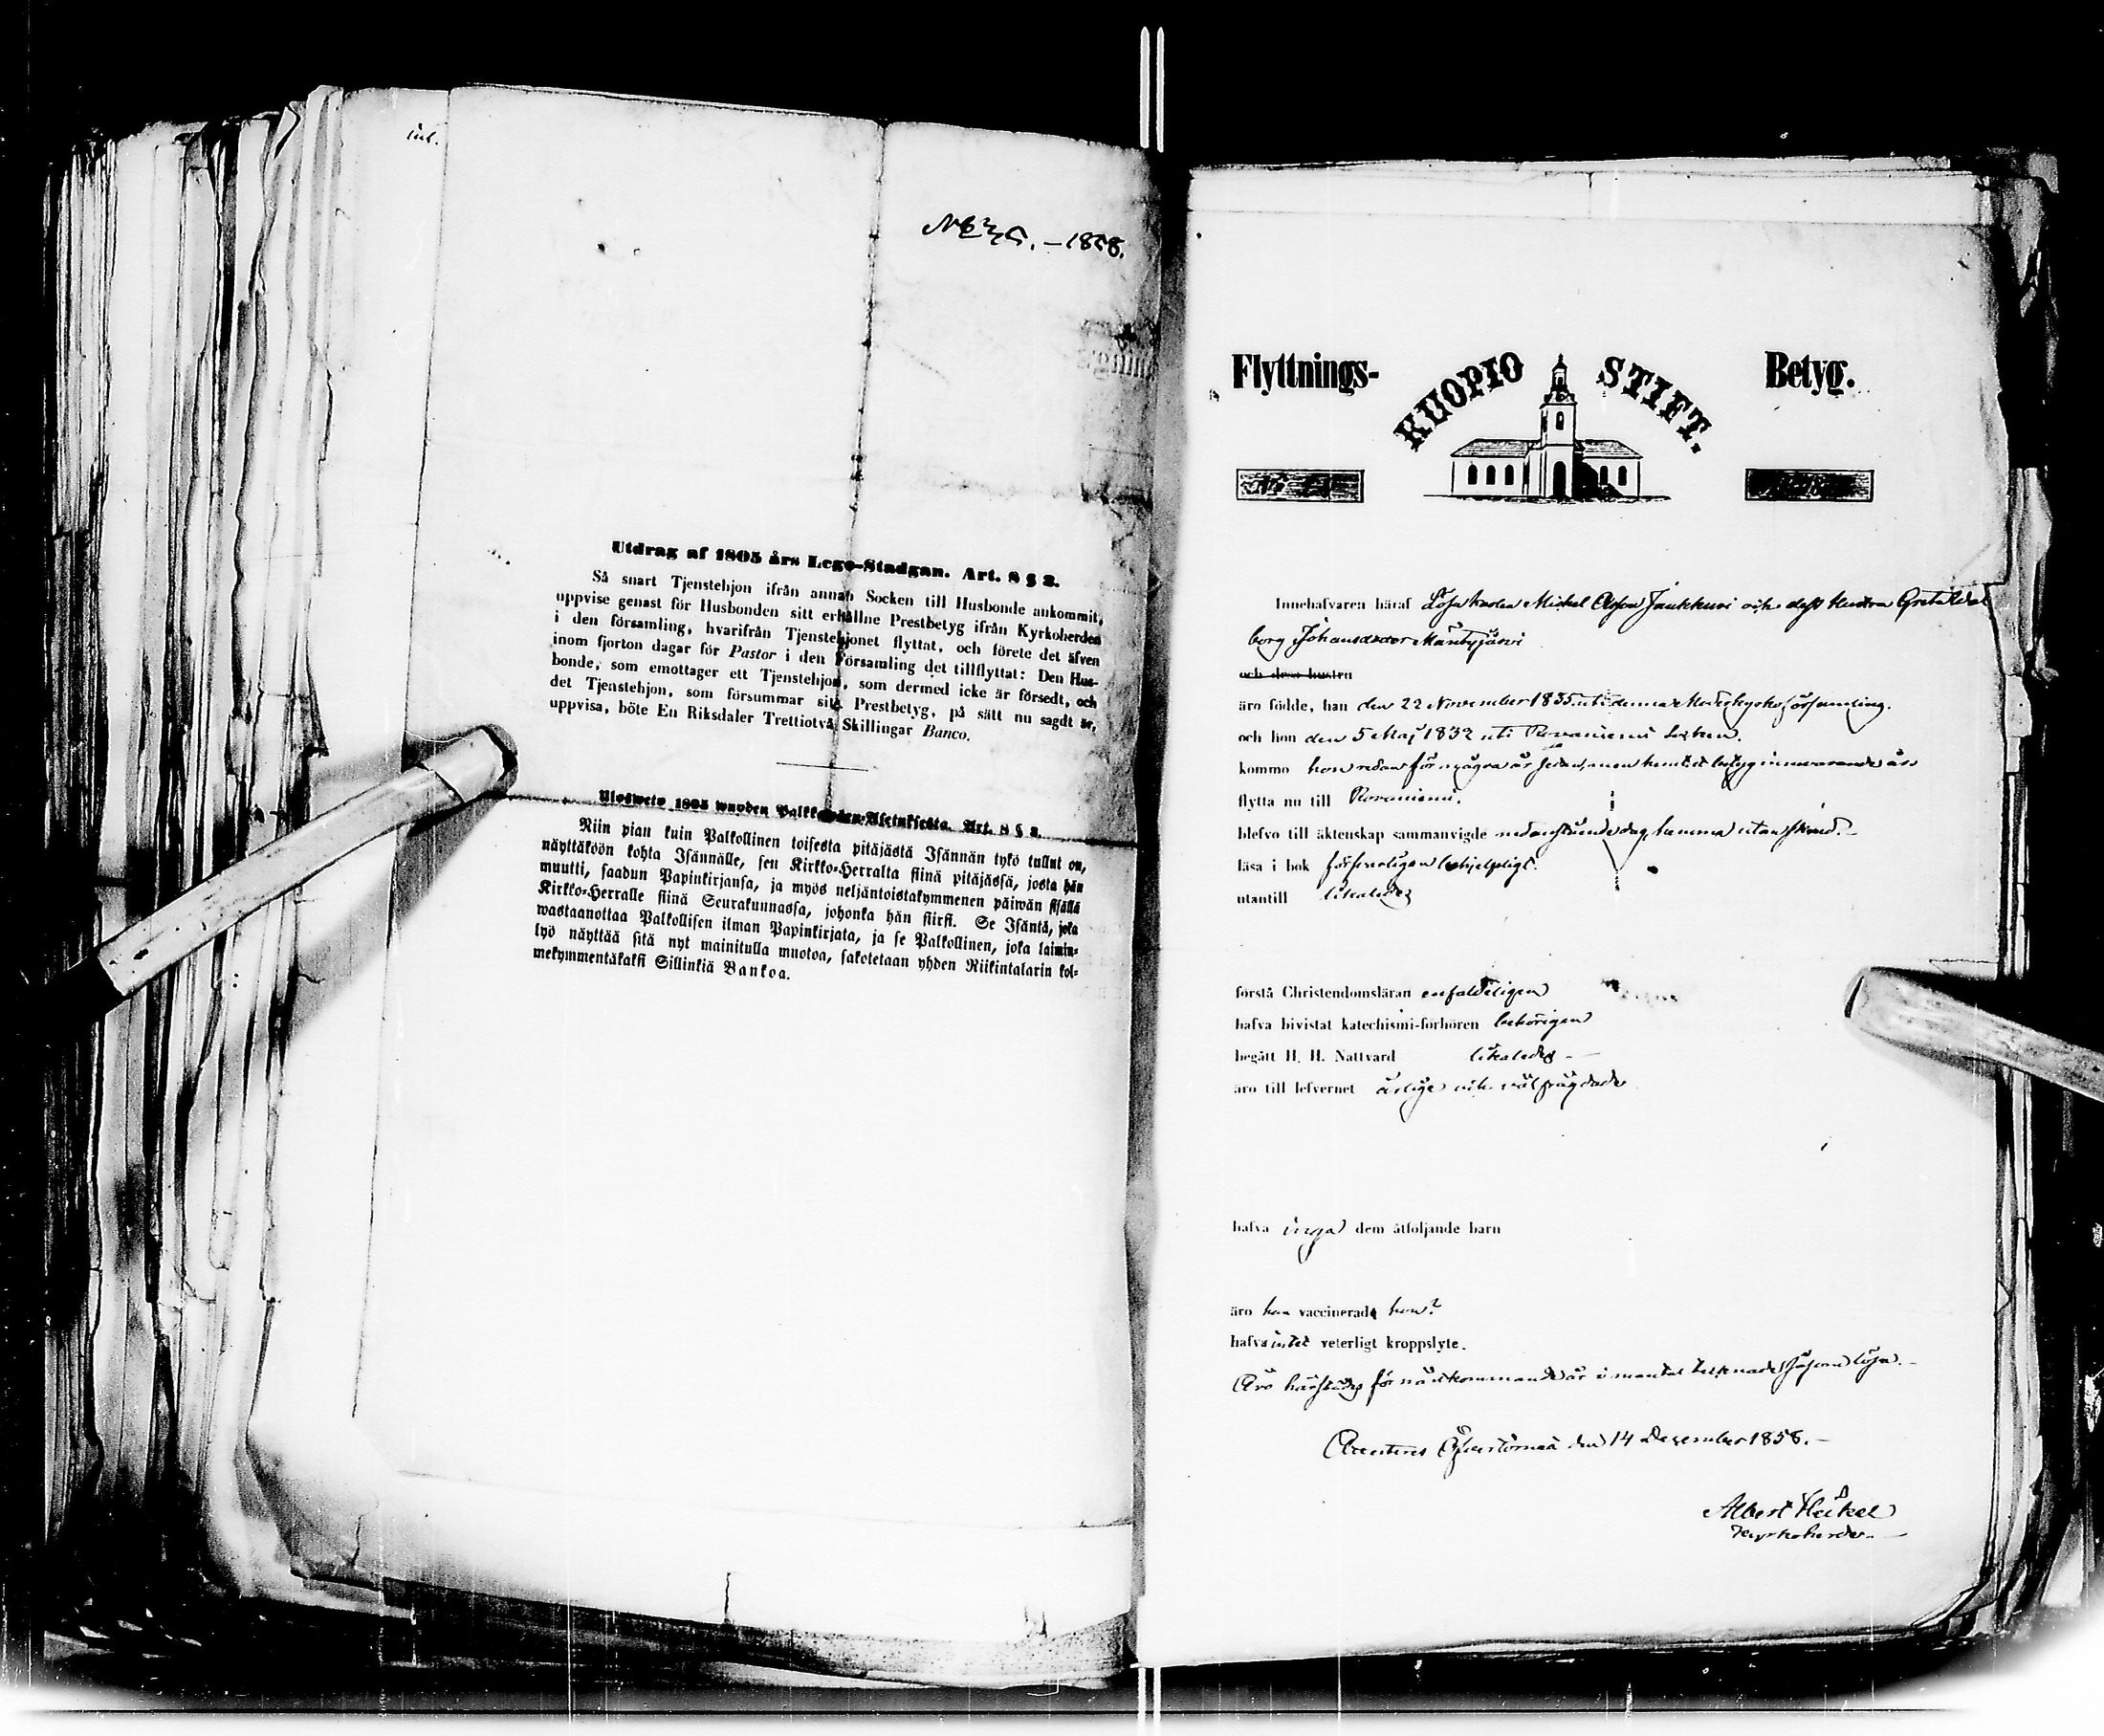 1858.
Utdrag af 1805 års Lego-Stadgan. Art. 8 § 2.
Så snart Tjenstehjon ifrån annan Socken till Husbonde ankommit,
uppvise genast för Husbonden sitt erhållne Prestbetyg ifrån Kyrkoherden
i den församling, hvarifrån Tjenstehjonet flyttat, och förete det äfven
inom fjorton dagar för Pastor i den Församling det tillflyttat: Den Hus-
bonde, som emottager ett Tjenstehjon, som dermed icke är försedt, och
det Tjenstehjon, som försummar sitt Prestbetyg, på sätt nu sagdt är,
uppvisa, böte En Riksdaler Trettiotvå Skillingar Banco.
Ulosweto 1805 wuoden Palkkollisten-Asetuksesta. Art. 8 § 2.
Niin pian kuin Palkollinen toisesta pitäjästä Isännän tykö tullut on,
näyttäköön kohta Isännälle, sen Kirkko-Herralta siinä pitäjässä, josta hän
muutti, saadun Papinkirjansa, ja myös neljäntoistakymmenen päiwän sisällä
Kirkko-Herralle siinä Seurakunnassa, johonka hän siirsi. Se Isäntä, joka
wastaanottaa Palkollisen ilman Papinkirjata, ja se Palkollinen, joka laimin-
lyö näyttää sitä nyt mainitulla muotoa, sakotetaan yhden Riikintalarin kol-
mekymmentäkaksi Sillinkiä Bankoa.
Flyttnings- KUOPIO STIFT. Betyg.
Innehafvaren häraf Lösa karlen Mickel Jaukkuri och dess hustru Greta Wal
borg Johansdotter Mäntyjärvi
och dess hustru
äro födde, han den 22 November 1835 uti denna Moderkyrkoförsamling.
och hon den 5 Maj 1832 uti Rovaniemi Socken.
kommo hon redan för några år sedan, men hemtat betyg innevarande år
flytta nu till Rovaniemi.
blefvo till äktenskap sammanvigde nedanstående dag, hemma utan
läsa i bok försvarligen behjelpligt.
utantill likaledes
förstå Christendomsläran enfaldeligen
hafva bivistat katechismi-förhören behörigen
begått H. H. Nattvard likaledes
äro till lefvernet ärlige och välfrägdade
hafva inga dem åtföljande barn
äro han vaccinerade hon?
hafva intet veterligt kroppslyte.
Äro härstädes för nästkommande år i mantal tecknade såsom lösa.
Öfvertorneå den 14 December 1858.
Albert Heikel
Kyrkoherde.